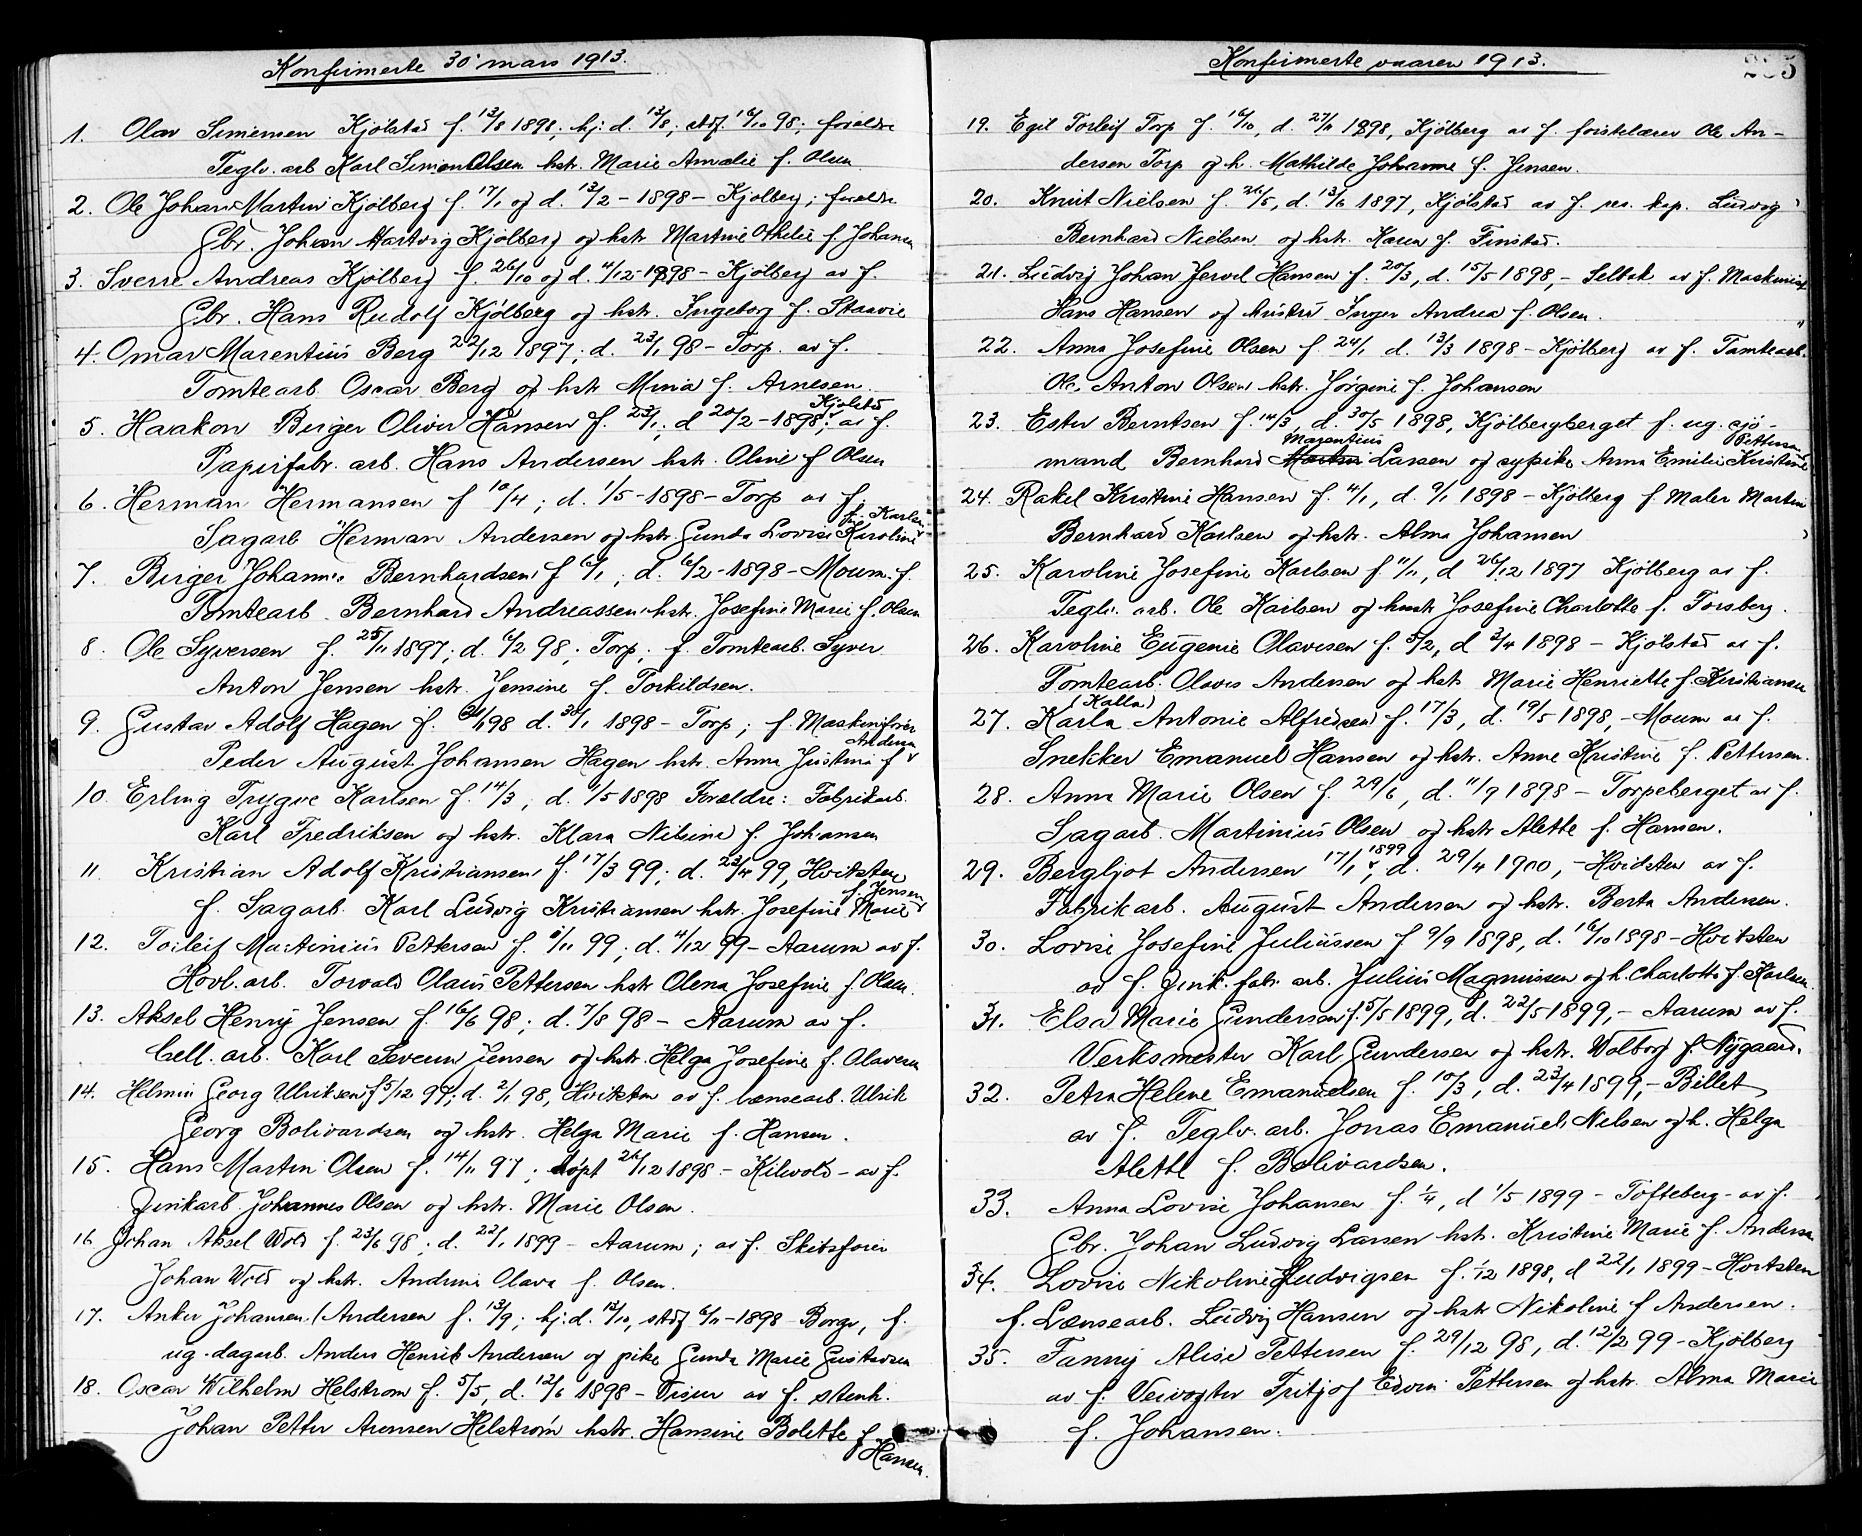 Konfirmerte 30' mars 1913.
1. Olav Simensen Kjølstad f. 13/8 1898; hj. d. 13/8; stdf. 16/10 98; foreldre
Teglv. arb Karl Simon Olsen hstr. Marie Amalie f. Olsen
2. Ole Johan Martin Kjølberg f. 17/1 og d. 13/2 - 1898 - Kjølberg; foreldre
Gbr. Johan Hartvig Kjølberg og hstr Martine Othilie f. Johansen
3. Sverre Andreas Kjølberg f. 26/10 og d. 4/12 - 1898 - Kjølberg av f.
Gbr. Hans Rudolf Kjølberg og hstr. Ingeborg f. Skaavie
4. Omar Marentius Berg 22/12 1897; d. 23/1 98 - Torp. av f.
Tomtearb. Oscar Berg og hstr Mina f. Arnesen.
5. Haakon Birger Oliver Hansen f. 23/1; d 20/2 - 1898; Kjølstad av f.
Papirfabr. arb. Hans Andersen hstr. Oline f Olsen
6. Herman Hermansen f 10/4; d. 1/5 - 1898 - Torp av f.
Sagarb Herman Andersen og hstr. Gunda Lovise Karoline f. Karlsen
7. Birger Johannes Bernhardsen f 6/1; d. 6/2 - 1898 - Moum. f.
Tomtearb. Bernhard Andreassen hstr. Josefine Marie f. Olsen
8. Ole Syversen f. 25/11 1897; d. 6/2 98; Torp; f. Tomtearb. Syver
Anton Jensen hstr. Jensine f. Torkildsen.
9. Gustav Adolf Hagen f. 98 d. 30/1 1898 - Torp; f. Maskinfører
Peder August Johansen Hagen hstr. Anna Justina f Andersen
10. Erling Trygve Karlsen f. 14/3, d. 1/5 1898 Foreldre: Fabrikarb.
Karl Fredriksen og hstr. Klara Nilsine f. Johansen
11 Kristian Adolf Kristiansen f. 17/3 99; d. 23/4 99, Hvitsten
f. Sagarb. Karl Ludvig Kristiansen hstr. Josefine Marie f. Jensen
12. Torleif Martinius Pettersen f. 99; d. 4/12 99 - Aarum av f.
Hovl. arb. Torvald Olaus Pettersen hstr Olena Josefine f. Olsen.
13. Aksel Henry Jensen f. 16/6 98; d. 7/8 98 - Aarum av f.
Cell. arb. Karl Severin Jensen og hstr. Helga Josefine f. Olavesen
14. Helmin Georg Ulriksen f 5/12 97; d. 2/1 98, Hvitsten av f. lænsearb. Ulrik
Georg Bolivardsen og hstr. Helga Marie f. Hansen.
15. Hans Martin Olsen f. 14/11 97; døpt 26/12 1898 - Kilevold - av f.
Zinkarb. Johannes Olsen og hstr. Marie Olsen.
16. Johan Aksel Wold f. 23/6 98; d. 22/1 1899 - Aarum; av f. Skibsfører
Johan Wold og hstr. Andrine Olava f. Olsen.
17. Anker Johansen (Andersen f. 13/9; hj. d. 13/10, stdf 6/11 - 1898 Borge, f.
ug. dagarb. Anders Henrik Andersen og pike Gunda Marie Gustavsen
18. Oscar Wilhelm Helstrom f. 5/5, d. 12/6 1898 - Visur av f. stenh.
Johan Petter Aronsen Helstrøm hstr. Hansine Bolette f Hansen.
Konfirmerte vaaren 1913.
19. Egil Torleif Torp f. 16/10, d. 27/11 1898, Kjølberg av f. forstelærer Ole An-
dersen Torp og h. Mathilde Johanne f. Jensen.
20. Knut Nielsen f. 26/5, d. 13/6 1897, Kjølstad av f. res. kap. Ludvig
Bernhard Nielsen og hstr. Karen f. Finstad.
21. Ludvig Johan Jervel Hansen f. 20/3, d. 15/5 1898, - Selbak av f. Maskinist
Hans Hansen og hustru Inger Andrea f. Olsen.
22. Anna Josefine Olsen f. 24/1 d. 13/3 1898 - Kjølberg av f. Tomtearb.
Ole Anton Olsen hstr. Jørgine f. Johansen
23. Ester Berntsen f. 14/3, d. 30/5 1898, Kjølbergberget f. ug. sjø-
mand Bernhard Marentius Larsen og sypike Anna Emilie Kristine Pettersen
24. Rakel Kristine Hansen f. 4/1, d. 9/1 1898 - Kjølberg f. Maler Martin
Bernhard Karlsen og hstr. Alma Johansen
25. Karoline Josefine Karlsen f 11/11, d 26/12 1897 Kjølberg av f.
Teglv. arb. Ole Karlsen og hustr Josefine Charlotte f. Forsberg.
26. Karoline Eugenie Olavesen f. 5/2, d 3/4 1898 - Kjølstad av f.
Tomtearb. Olaves Andersen og hstr Marie Henriette f. Kristiansen
27. Karla (Kalla) Antonie Alfredsen f. 17/3, d. 19/5 1898, - Moum av f.
Snekker Emanuel Hansen og hstr. Anne Kristine f. Pettersen.
28. Anna Marie Olsen f. 29/6, d. 11/9 1898 - Torpeberget av f.
Sagarb. Martinius Olsen og hstr Alette f. Hansen.
29. Bergljot Andersen 17/1 1899, d. 29/4 1900, - Hvidsten av f.
Fabrikarb. August Andersen og hstr. Berta Andersen.
30. Lovise Josefine Juliussen f 9/9 1898, d. 16/10 1898 - Hvitsten
av f. Zink. fabr. arb. Julius Magnussen og h. Charlotte f. Karlsen
31. Elsa Marie Gundersen f. 15/5 1899, d. 22/5 1899, - Aarum av f.
Verksmester Karl Gundersen og hstr. Wolborg f. Nygaard.
32. Petra Helene Emanuelsen f. 10/3, d. 23/4 1899, - Billet
av f. Teglv. arb. Jonas Emanuel Nilsen og h. Helga
Alette f. Bolivardsen.
33. Anna Lovise Johansen f. 1/4, d 1/5 1899 - Tofteberg - av f.
Gbr. Johan Ludvig Larsen hstr. Kristine Marie f. Andersen
34. Lovise Nikoline Ludvigsen f. 1/12 1898, d 22/1 1899 - Hvitsten
f. Lænsearb. Ludvig Hansen og hstr Nikoline f Andersen.
35. Fanny Alise Pettersen f. 29/12 98, d. 12/2 99 - Kjølberg
av f. Veivogter Fritjof Edvin Pettersen og hstr. Alma Marie
f. Johansen.